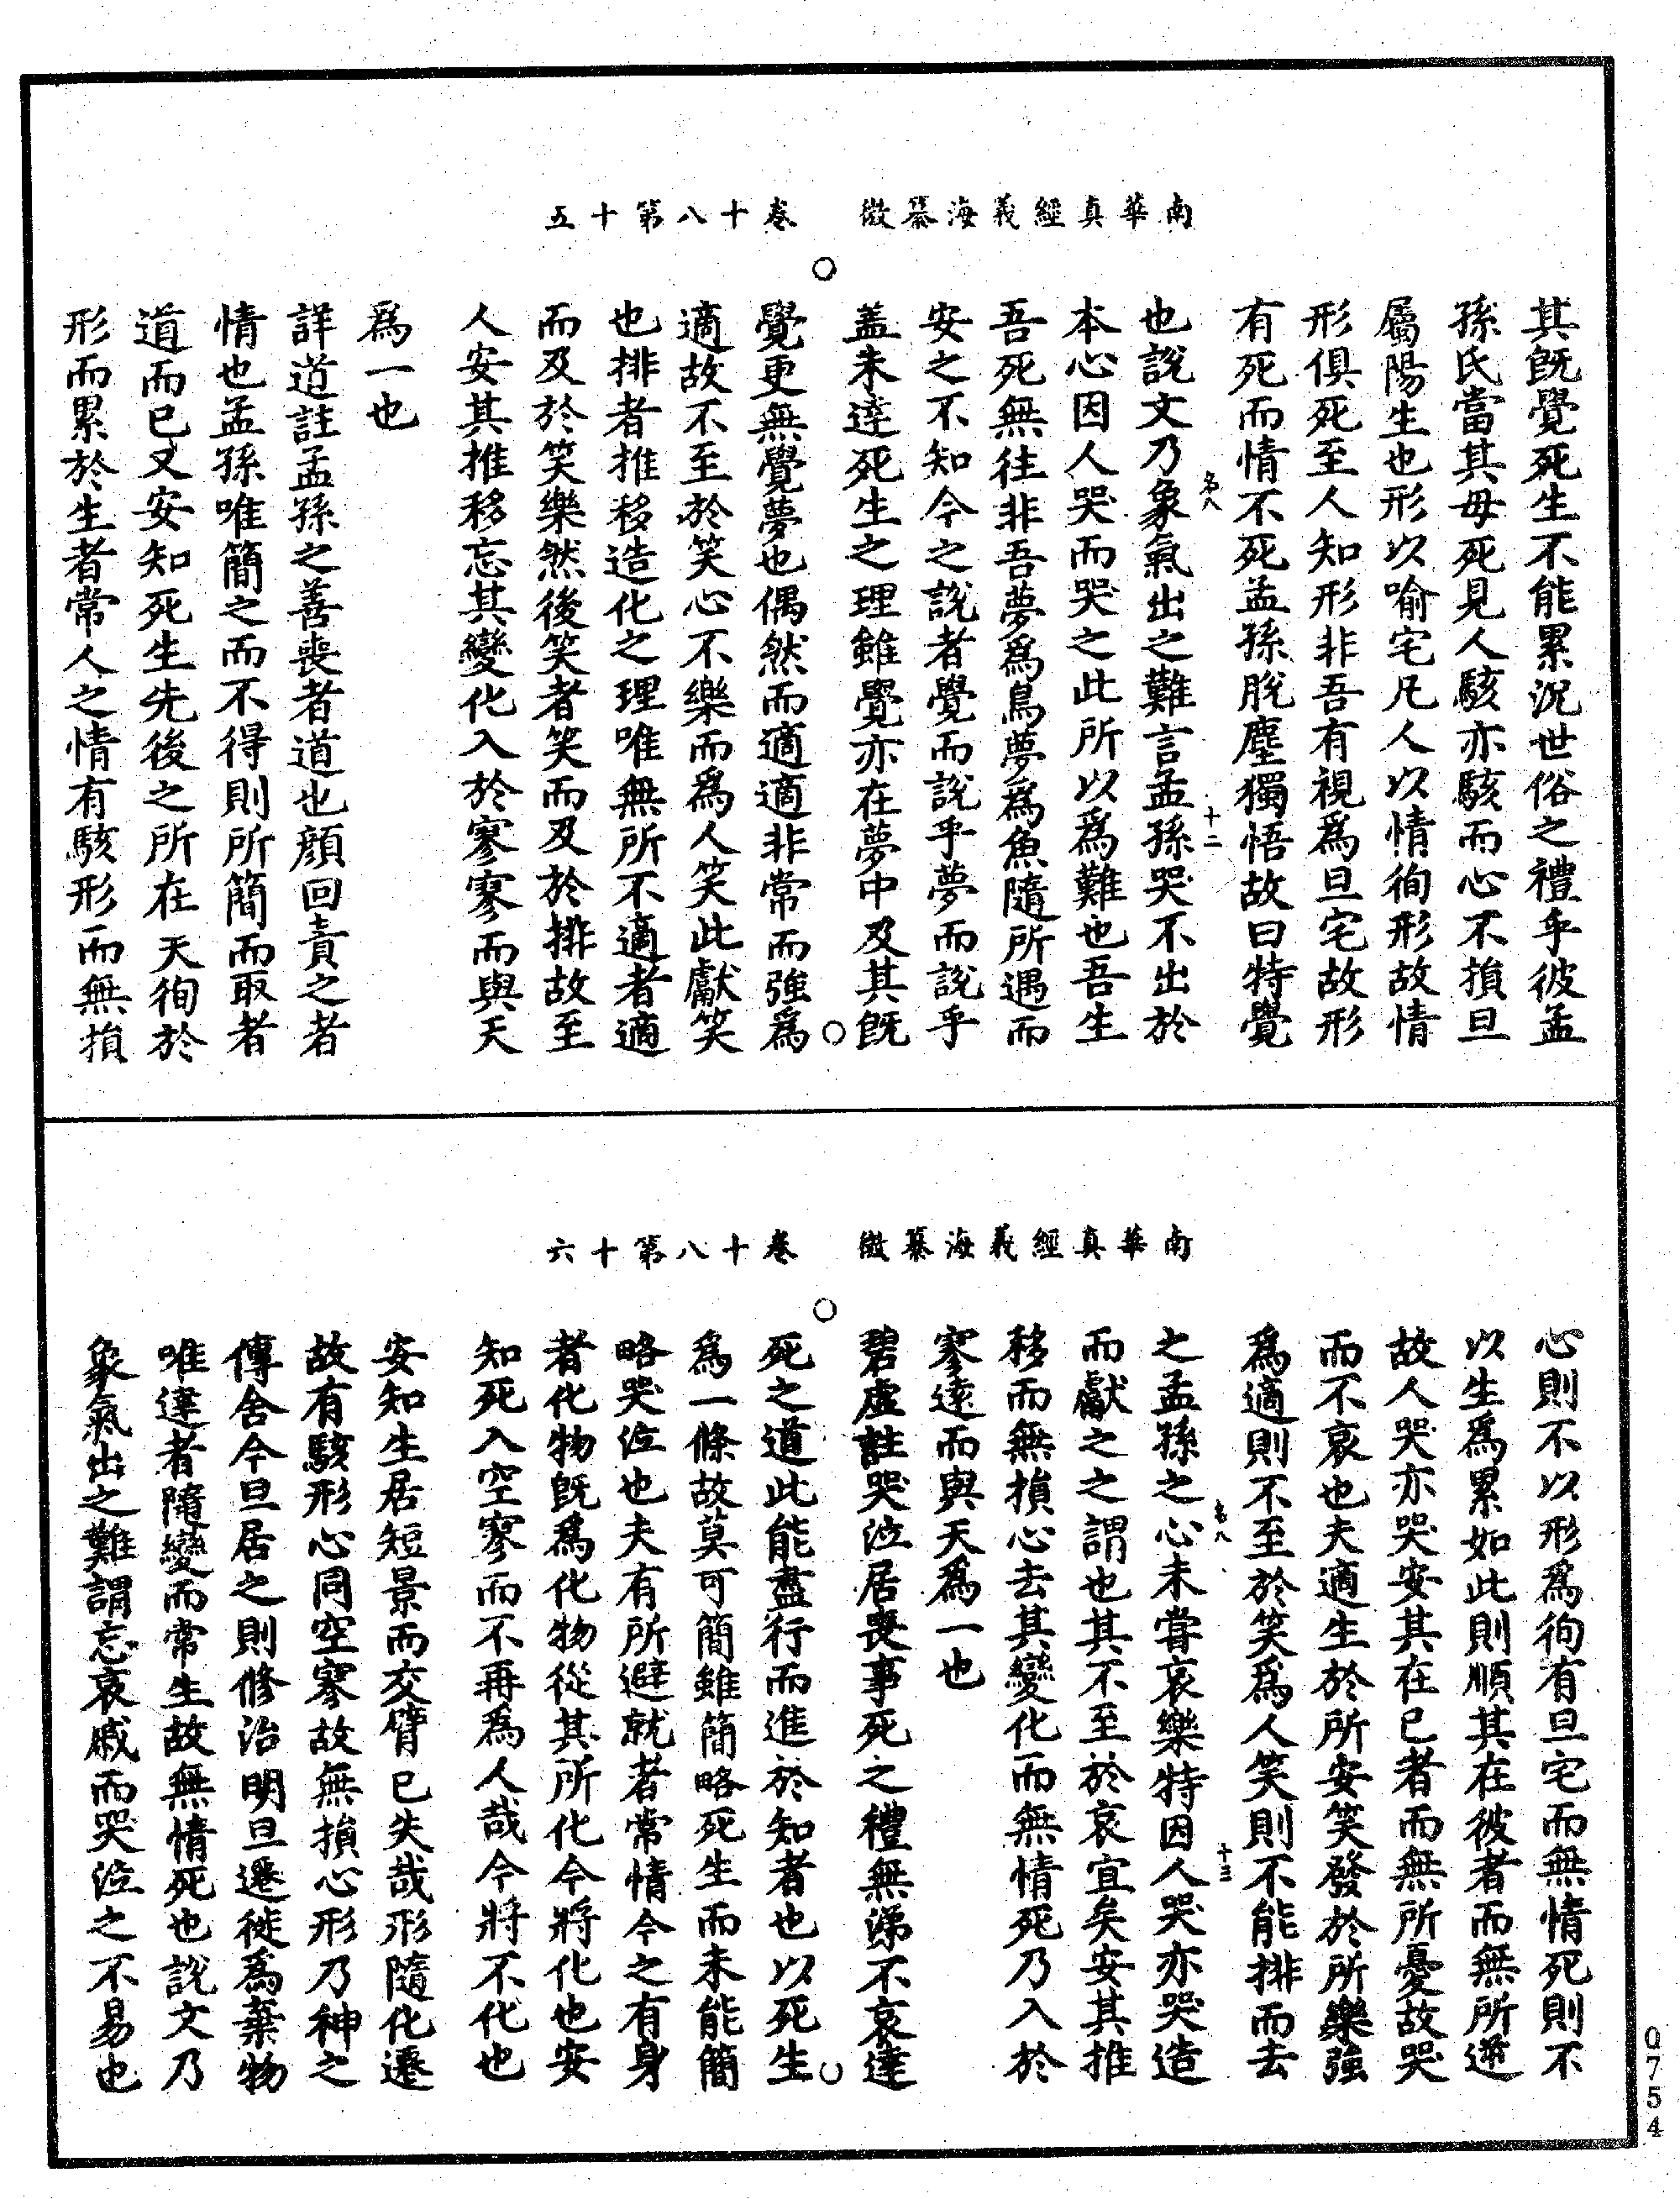 南華真經義海纂微　卷十八第十五
其旣覺死生不能累況世俗之禮乎彼孟
孫氏當其母死見人駭亦駭而心不損旦
屬陽生也形以喻宅凡人以情徇形故情
形俱死至人知形非吾有視爲旦宅故形
有死而情不死孟孫脫塵獨悟故曰特覺
弟八　十二
也說文乃象氣出之難言孟孫哭不出於
本心因人哭而哭之此所以爲難也吾生
吾死無往非吾夢爲鳥夢爲魚隨所遇而
安之不知今之說者覺而說乎夢而說乎
蓋未達死生之理雖覺亦在夢中及其旣
覺更無覺夢也偶然而適適非常而強爲
適故不至於笑心不樂而爲人笑此獻笑
也排者推移造化之理唯無所不適者適
而及於笑樂然後笑者笑而及於排故至
人安其推移忘其變化入於寥寥而與天
爲一也
詳道註孟孫之善喪者道也顏回責之者
情也孟孫唯簡之而不得則所簡而取者
道而已又安知死生先後之所在天徇於
形而累於生者常人之情有駭形而無損
南華真經義海纂微　卷十八第十六
心則不以形爲徇有旦宅而無情死則不
以生爲累如此則順其在彼者而無所逆
故人哭亦哭安其在已者而無所憂故哭
而不哀也夫適生於所安笑發於所樂強
爲適則不至於笑爲人笑則不能排而去
弟八　十三
之孟孫之心未嘗哀樂特因人哭亦哭造
而獻之之謂也其不至於哀宜矣安其推
移而無損心去其變化而無情死乃入於
寥遠而與天爲一也
碧虛註哭泣居喪事死之禮無涕不哀達
死之道此能盡行而進於知者也以死生
爲一條故莫可簡雖簡略死生而未能簡
略哭泣也夫有所避就者常情今之有身
者化物旣爲化物從其所化今將化也安
知死入空寥而不再爲人哉今將不化也
安知生居短景而交臂已失哉形隨化遷
故有駭形心同空寥故無損心形乃神之
傳舍今旦居之則修治明旦遷徙爲棄物
唯達者隨變而常生故無情死也說文乃
象氣出之難謂忘哀戚而哭泣之不易也
Q754